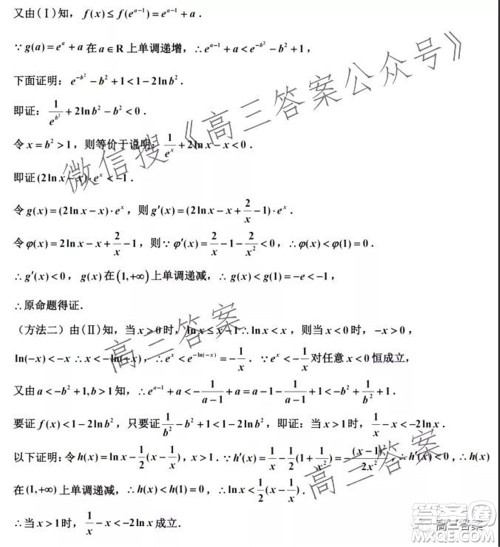 又由(Ⅰ)知，f(x)≤f(e^{a-1})=e^{a-1}+a．
∵g(a)=e^{a}+a在a∈R上单调递增，∴e^{a-1}+a<e^{-b²}-b²+1，
下面证明：e^{-b²}-b²+1<1-2lnb²．
即证：1/e^{b²}+2lnb²-b²<0．
令x=b²>1，则等价于说明，1/e^{x}+2lnx-x<0．
即证(2lnx-x)·e^{x}<-1．
令g(x)=(2lnx-x)·e^{x}，则g′(x)=(2lnx-x+2/x-1)·e^{x}．
令φ(x)=2lnx-x+2/x-1，则φ′(x)=2/x-2/x²-1<0，∴φ(x)<φ(1)=0．
∴g′(x)<0，g(x)在(1,+∞)上单调递减，∴g(x)<g(1)=-e<-1，
∴原命题得证．
（方法二）由(Ⅱ)知，当x>0时，lnx≤x-1∴lnx<x，则当x<0时，-x>0，
ln(-x)<-x∴x<-ln(-x)，∴e^{x}<e^{-ln(-x)}=-1/x．∵e^{x}<-1/x对任意x<0恒成立，
又由a<-b²+1,b>1知，∴e^{a-1}+a<-1/(a-1)+a=a-1-1/(a-1)+1<1/b²-b²+1，
要证f(x)<1-2lnb²，只要证1/b²-b²+1<1-2lnb²，即证：当x>1时，1/x-x<-2lnx
以下证明：令h(x)=lnx-1/2(x-1/x)．∵h′(x)=1/x-1/2(1+1/x²)=-(x-1)²/2x²，∴h′(x)<0∴h(x)
在(1,+∞)上单调递减，∴h(x)<h(1)=0，
∴当x>1时，1/x-x<-2lnx成立．
微信搜《高三答案公众号》
高三答案
高三答案
高三答案